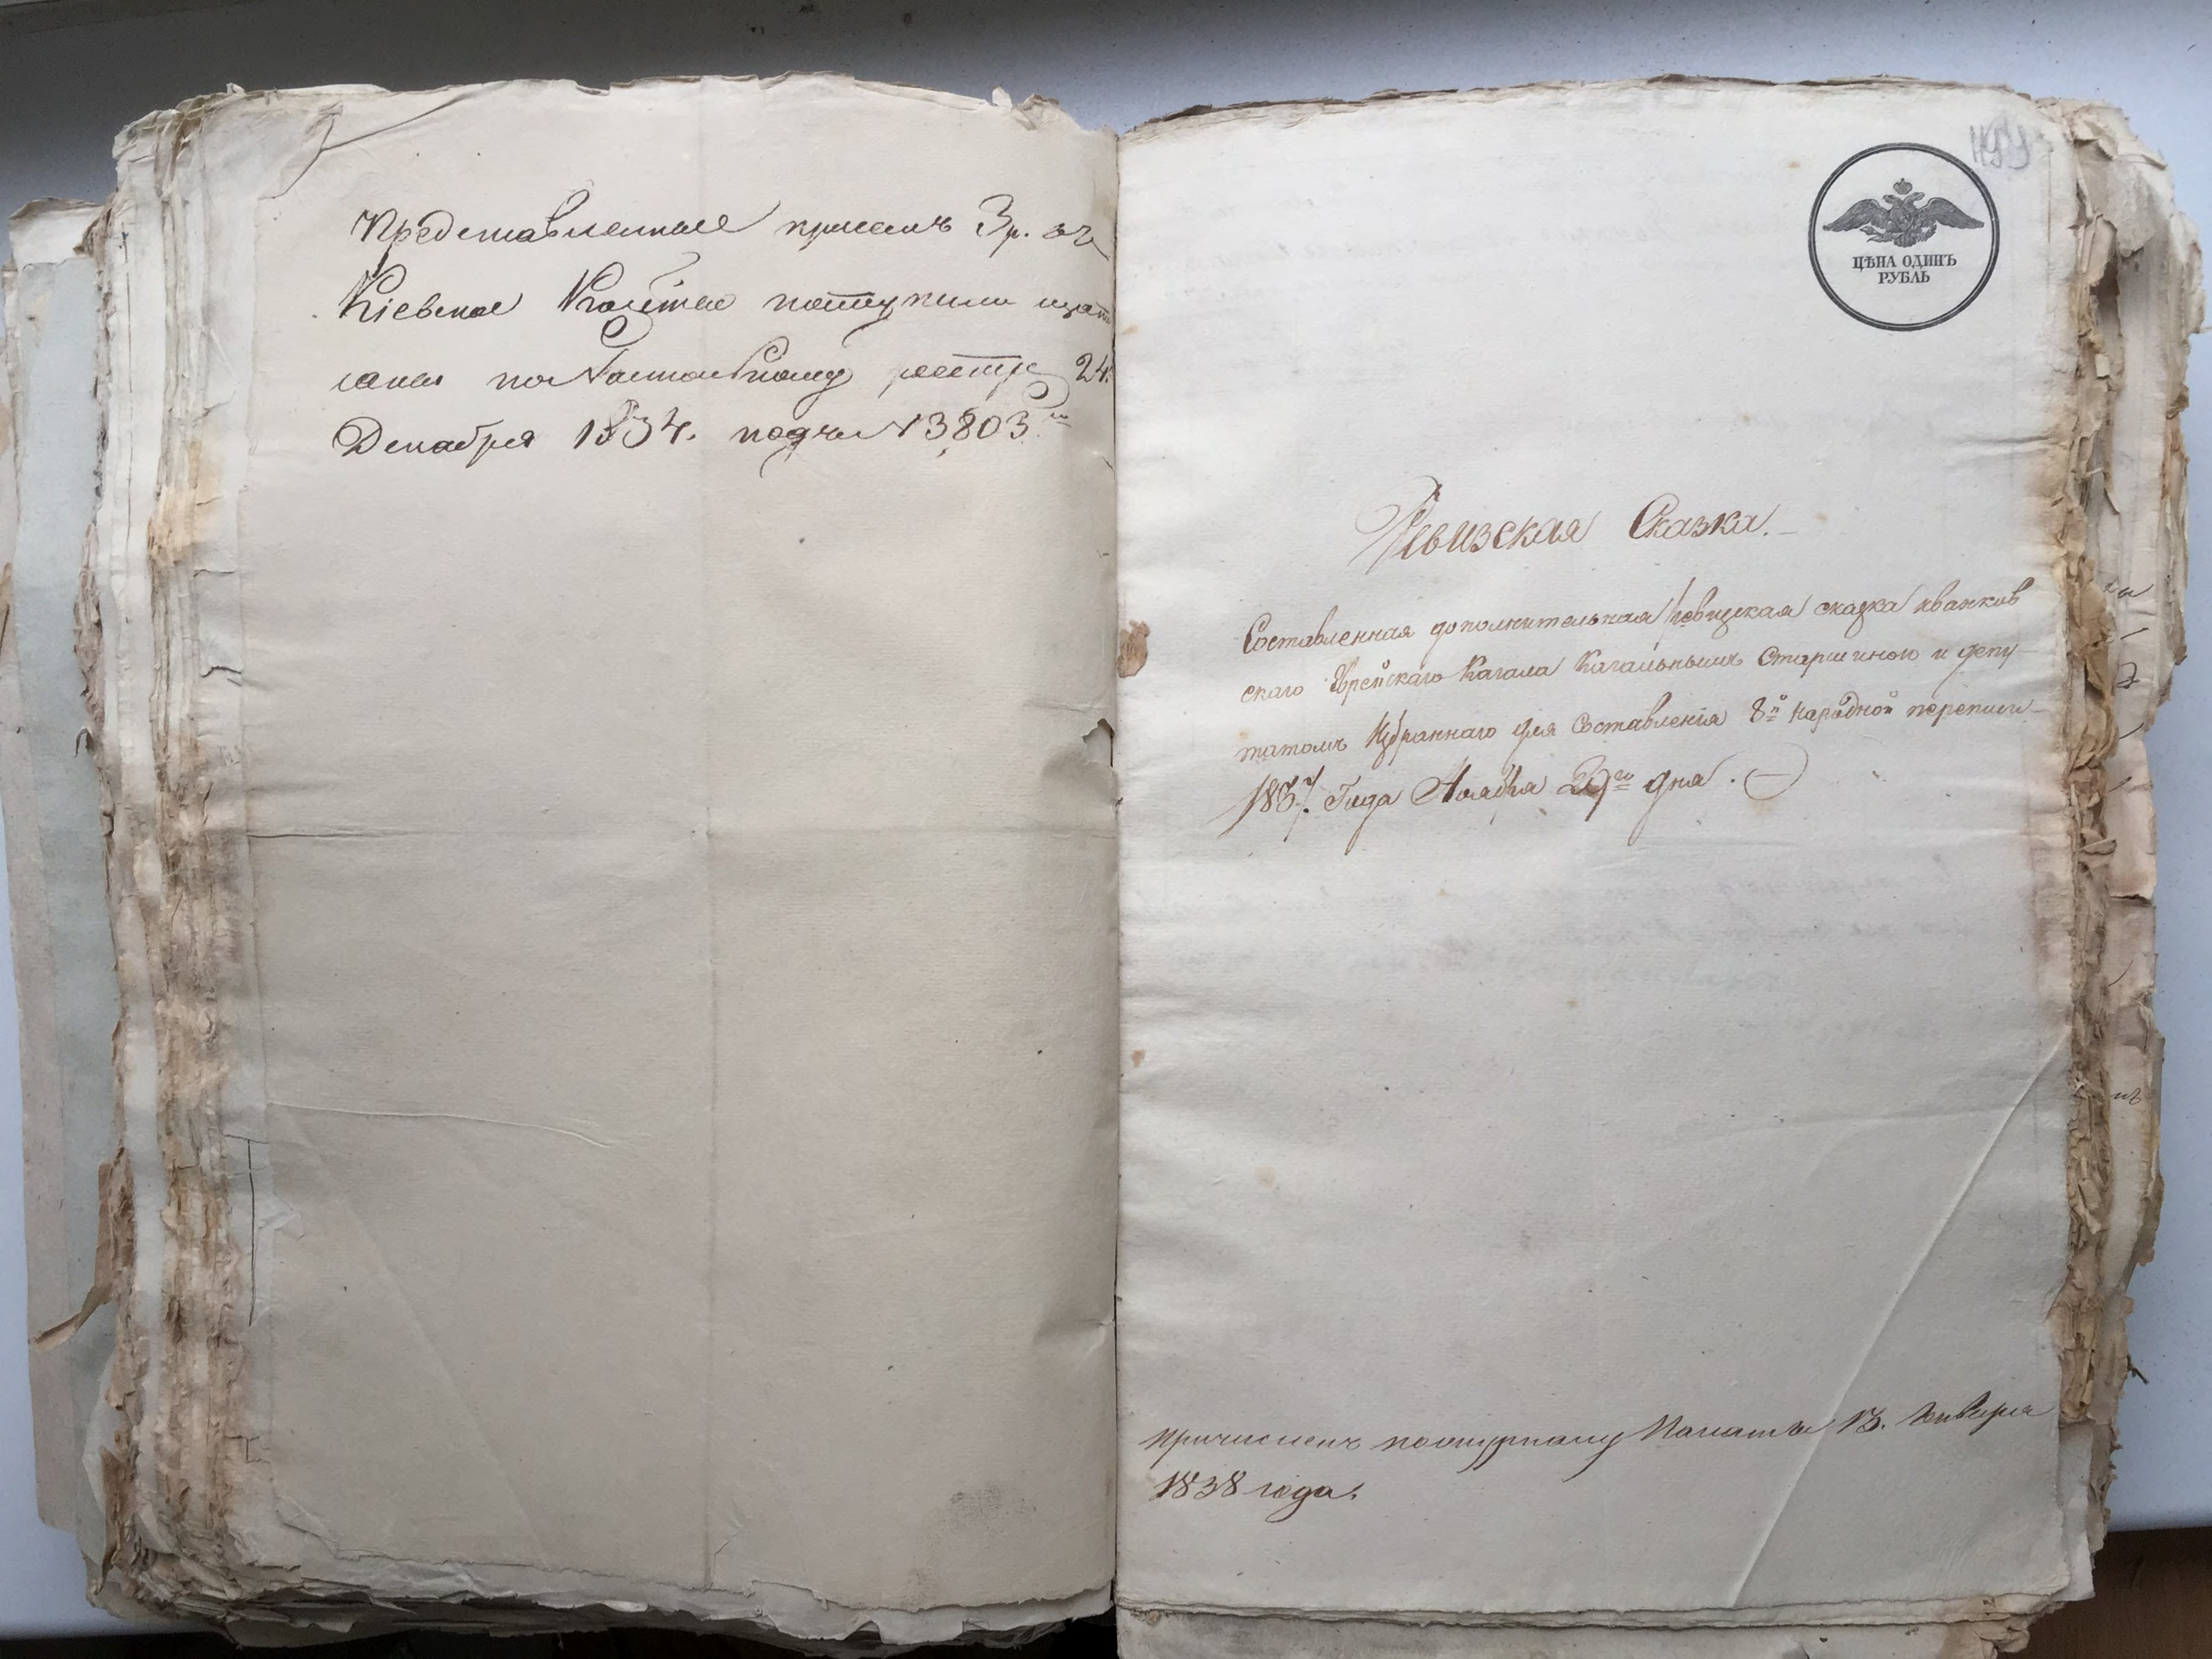 Представленные присемъ 3 р. въ
Кіевское Казнач поступили и запи
саны по настольному реестру 24
Декабря 1834. подъ № 3803.
ЦѢНА ОДИНЪ
РУБЛЬ
Ревизская Сказка.
Составленная дополнительная ревизская сказка иванков
скаго Еврейскаго Кагала Кагальнымъ Старшиною и депу
татомъ Избраннаго для Составленія 8й народной переписи
1837. Года Ноября 29го дня.
Причисленъ по журналу Палаты 13. Января
1838 года.